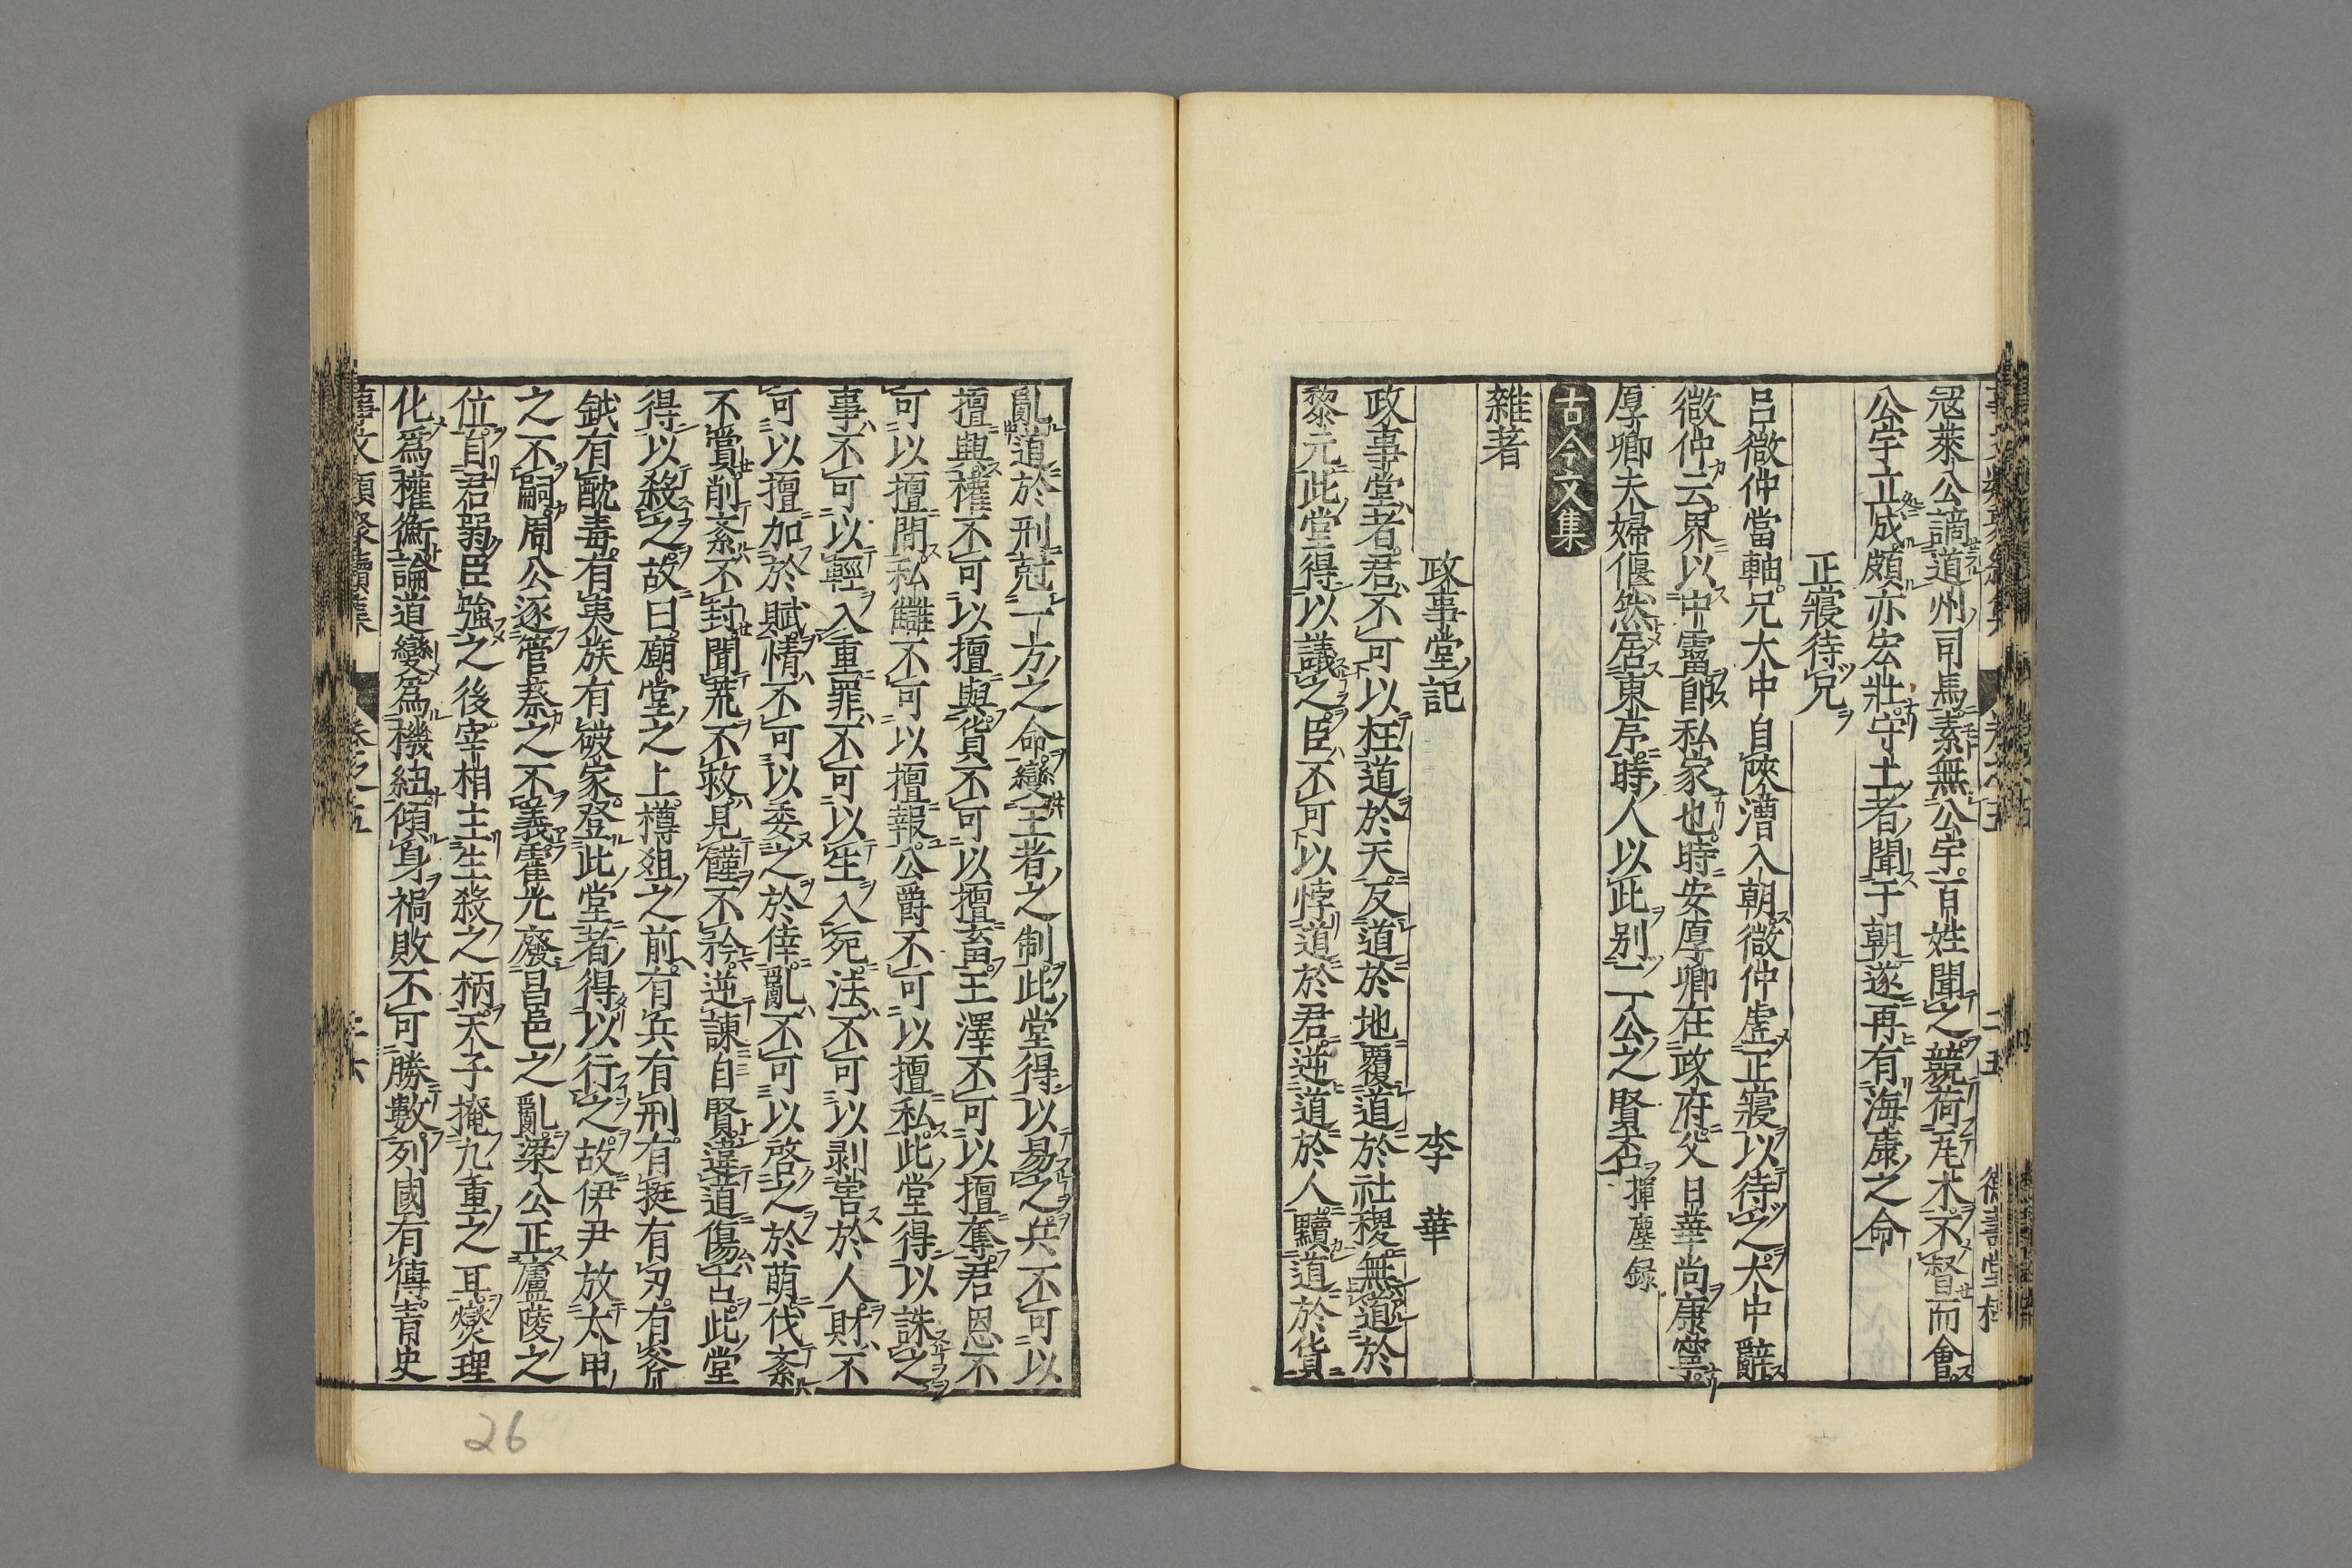 寇萊公謫道州司馬素無公宇百姓聞之競荷瓦木不督而會
公宇立成頗亦宏壯守土者聞于朝遂再有海康之命
正寢待兄
呂微仲當軸兄大中自陝漕入朝微仲虛正寢以待之大中辭
微仲云界以中霤即私家也時安厚卿在政府父日華尚康寧
厚卿夫婦偃然居東序時人以此别二公之賢否揮塵録
古今文集
雜著
政事堂記 李華
政事堂者君不可以枉道於天反道於地覆道於社稷無道於
黎元此堂得以議之臣不可以悖道於君逆道於人黷道於貨
亂道於刑尅一方之命變王者之制此堂得以易之兵不可以
擅興權不可以擅與貨不可以擅畜王澤不可以擅奪君恩不
可以擅間私讎不可以擅報公爵不可以擅私此堂得以誅之
事不可以輕入重罪不可以生入死法不可以剥害於人財不
可以擅加於賦情不可以委之於倖亂不可以啓之於萌伐紊
不賞削紊不封聞荒不救見饉不矜逆諫自賢違道傷古此堂
得以殺之故曰廟堂之上樽俎之前有兵有刑有挺有刃有斧
鉞有酖毒有夷族有破家登此堂者得以行之故伊尹放太甲
之不嗣周公逐管蔡之不義霍光廢昌邑之亂梁公正廬陵之
位自君弱臣強之後宰相主生殺之柄天子掩九重之耳燮理
化爲權衡論道變爲機紐傾身禍敗不可勝數列國有傳青史
事文類聚續集 卷之五 二六
26